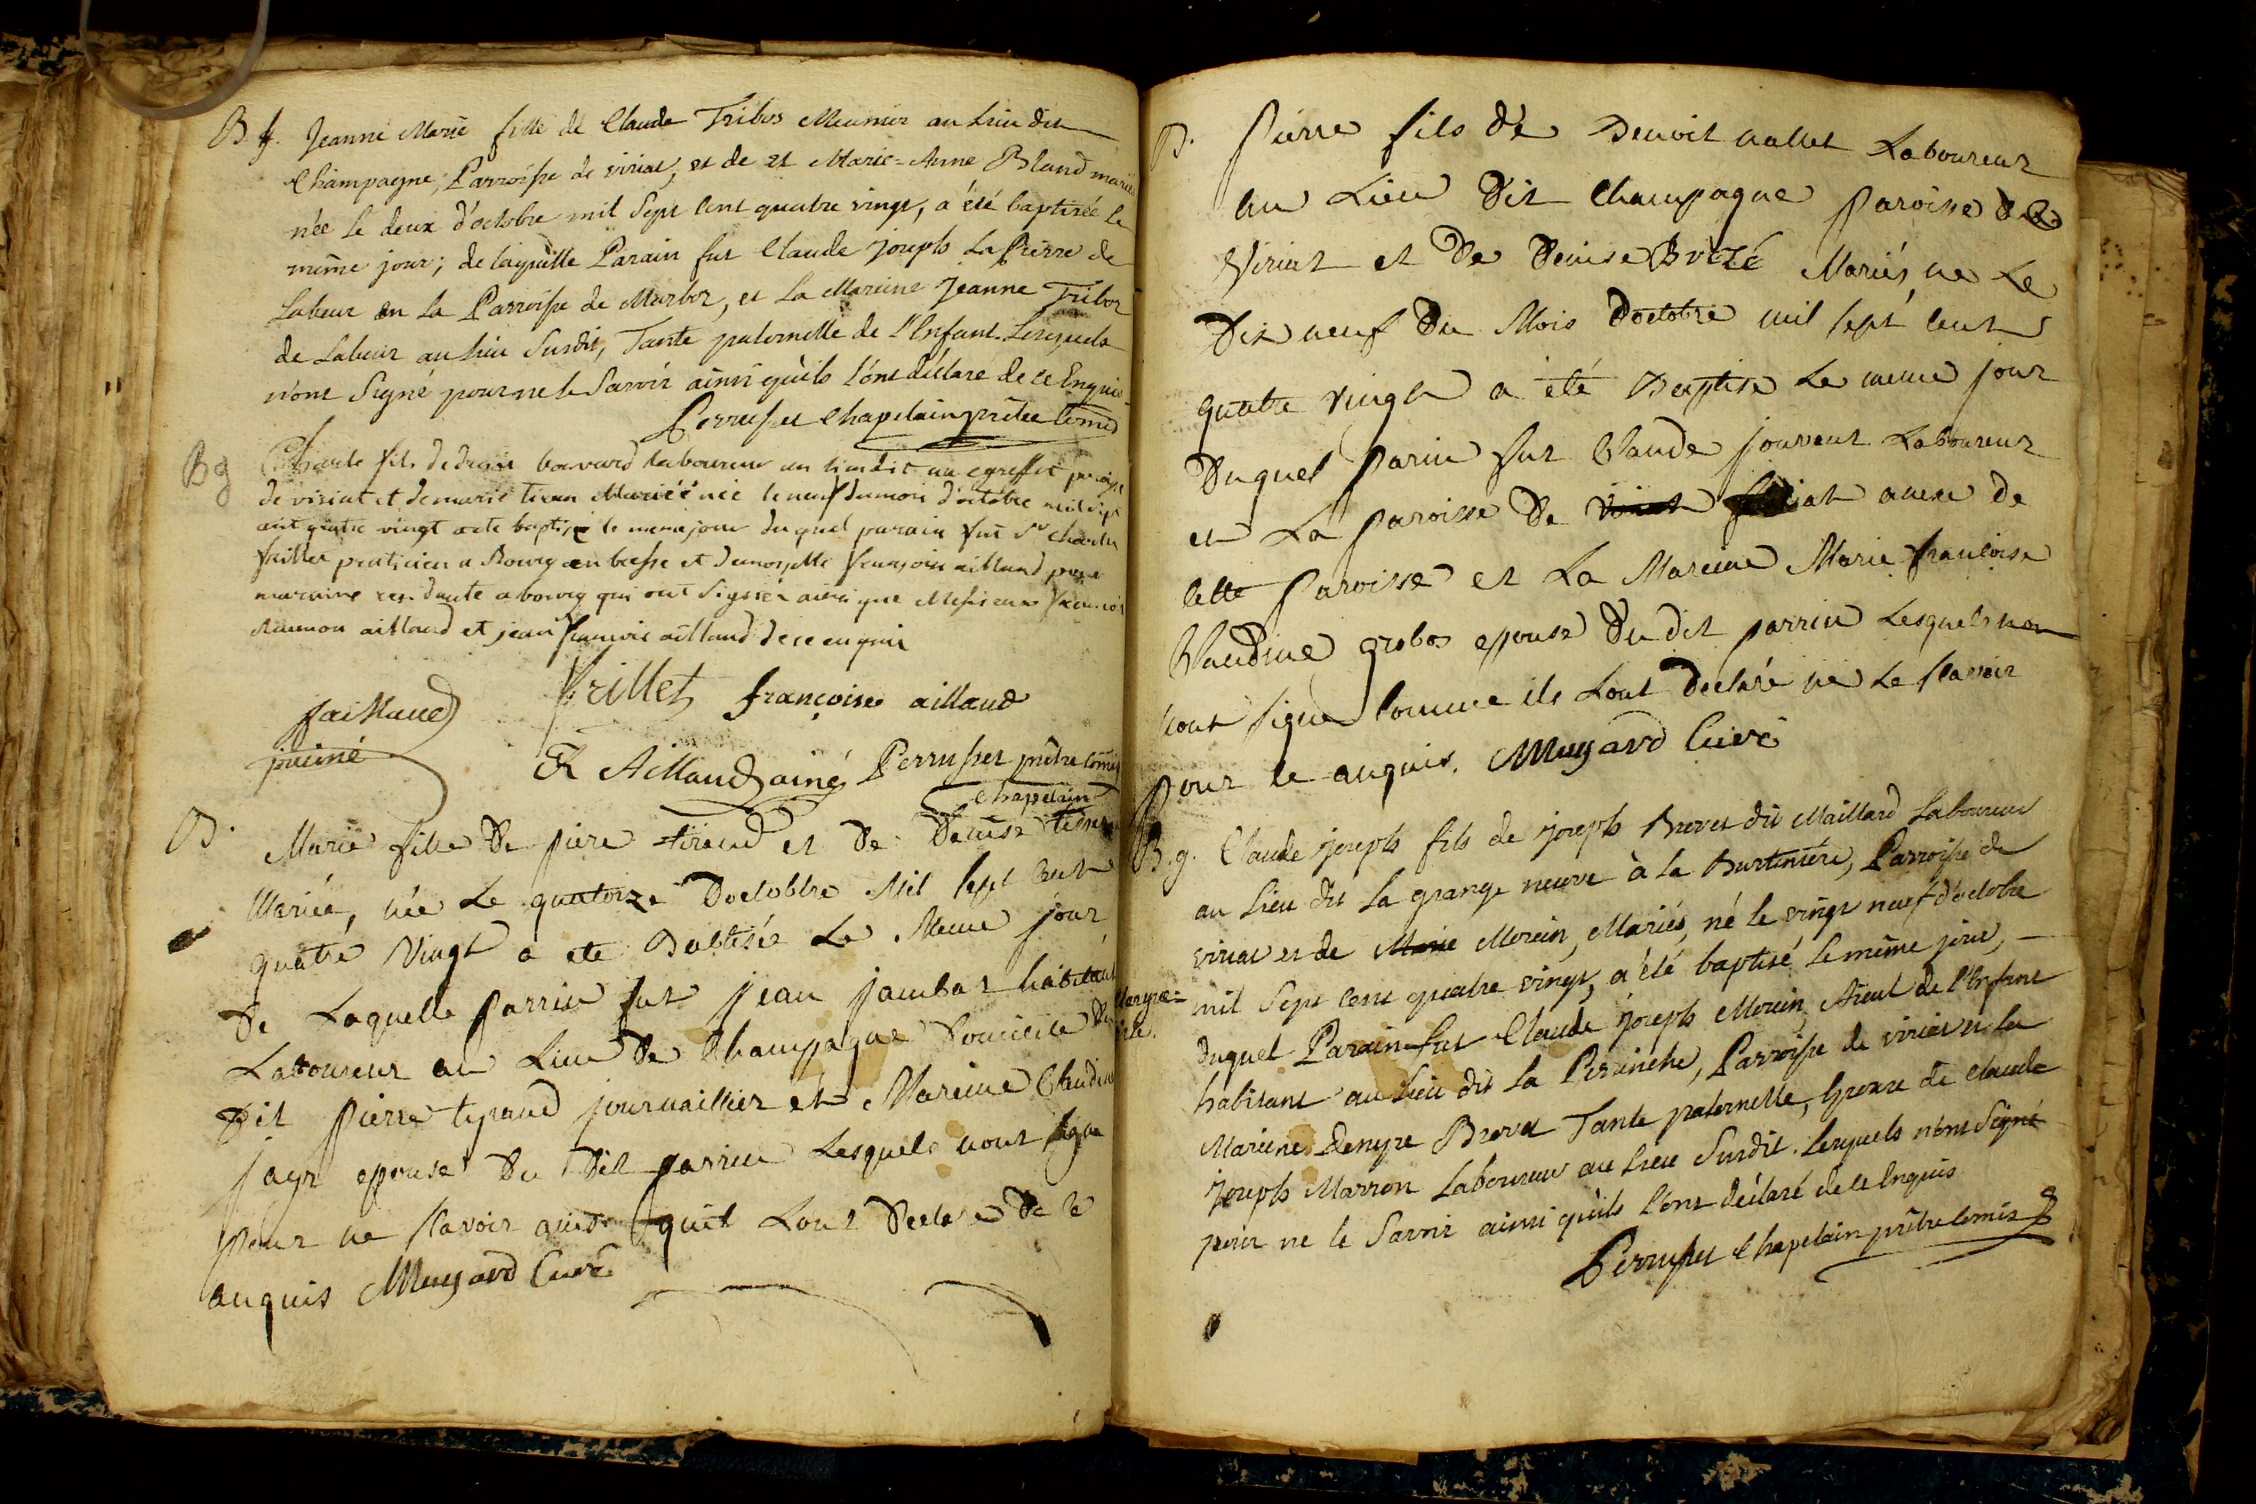 B f. Jeanne Marie fille de Claude Tribos Meunier au Lieu dit
Champagne, Parroisse de viriat, et de et Marie-Anne Bland mariés
née le deux d'octobre mil Sept Cent quatre vingt, a été baptisée le
même jour; de laquelle Parain fut Claude joseph La Pierre de
Labeur en La Parroisse de Marboz, et La Mareine Jeanne Tribos
de Labeur au Lieu Susdit, Tante paternelle de l'Enfant. Lesquels
n'ont Signé pour ne le Savoir ainsi qu'ils l'ont déclaré de ce Enquis
Perrusset Chapelain prêtre Comis
Bg Charle fils de bouvard laboureur au lieu dit au egreffet paroisse
de viriat et de marie tiran Mariéé néé le neuf du mois d'octobre mil sept
cent quatre vingt a ete baptisé le meme jour du quel parain fut Sr charles
frillet praticien a Bourg en bresse et demoiselle françoise aillaud pour
maraine residante a bourg qui ont signer ainsi que Messieurs francois
aillaud et jean francois aillaud de ce enquis
faillaud Frillet françoise aillaud
puiné
Aillaud ainé Perrusset prêtre Comis
Chapelain
B. Marie fille De piere tirand et De Denise
Mariée, née Le quatorze Doctobbre Mil Sept Cent
quatre Vingt a ete Babtisée Le Meme jour
De Laquelle Parrin fut jean jambat habitant
Laboureur au Lieu De Champagne Domicile Du
Dit Pierre tiraud journaillier et Mareine Claudine
jayr epouse Du Dit parrin Lesquels nont signe
pour ne Scavoir ainsi quil Lont Declare De ce
anquis Muzard Curé
B. Pierre fils de Benoit vallet Laboureur
au Lieu Dit Champagne Paroisse De
Viriat et De Denise Brozé Mariés, ne Le
Dix neuf Du Mois Doctobre mil sept cent
quatre Vingt a été Baptise Le meme jour
Duquel Parin fut Claude jouvent Laboureur
en La paroisse De viriat annexe de
cette Paroisse et La Mareine Marie françoise
Claudine grobos epouse Du dit parrin Lesquels non
nont signe comme ils Lont Declaré ne Le scavoir
Pour ce anquis. Muzard Curé
B. g. Claude joseph fils de joseph Brevet dit Maillard Laboureur
au Lieu dit La grange neuve à la Burtinière, Parroisse de
viriat et de Marie Morein, Mariés, né le vingt neuf d'octobre
mil Sept Cent quatre vingt, a été baptisé le même jour,
duquel Parain fut Claude joseph Morein Aïeul de l'Enfant
habitant au Lieu dit La Peruiche, Parroisse de viriat et La
Mareine Denyze Brevet Tante paternelle, Epouse de claude
joseph Marron Laboureur au Lieu Susdit. Lesquels n'ont Signé
pour ne le Savoir ainsi qu'ils l'ont déclaré de ce Enquis
Perrusset Chapelain prêtre Comis